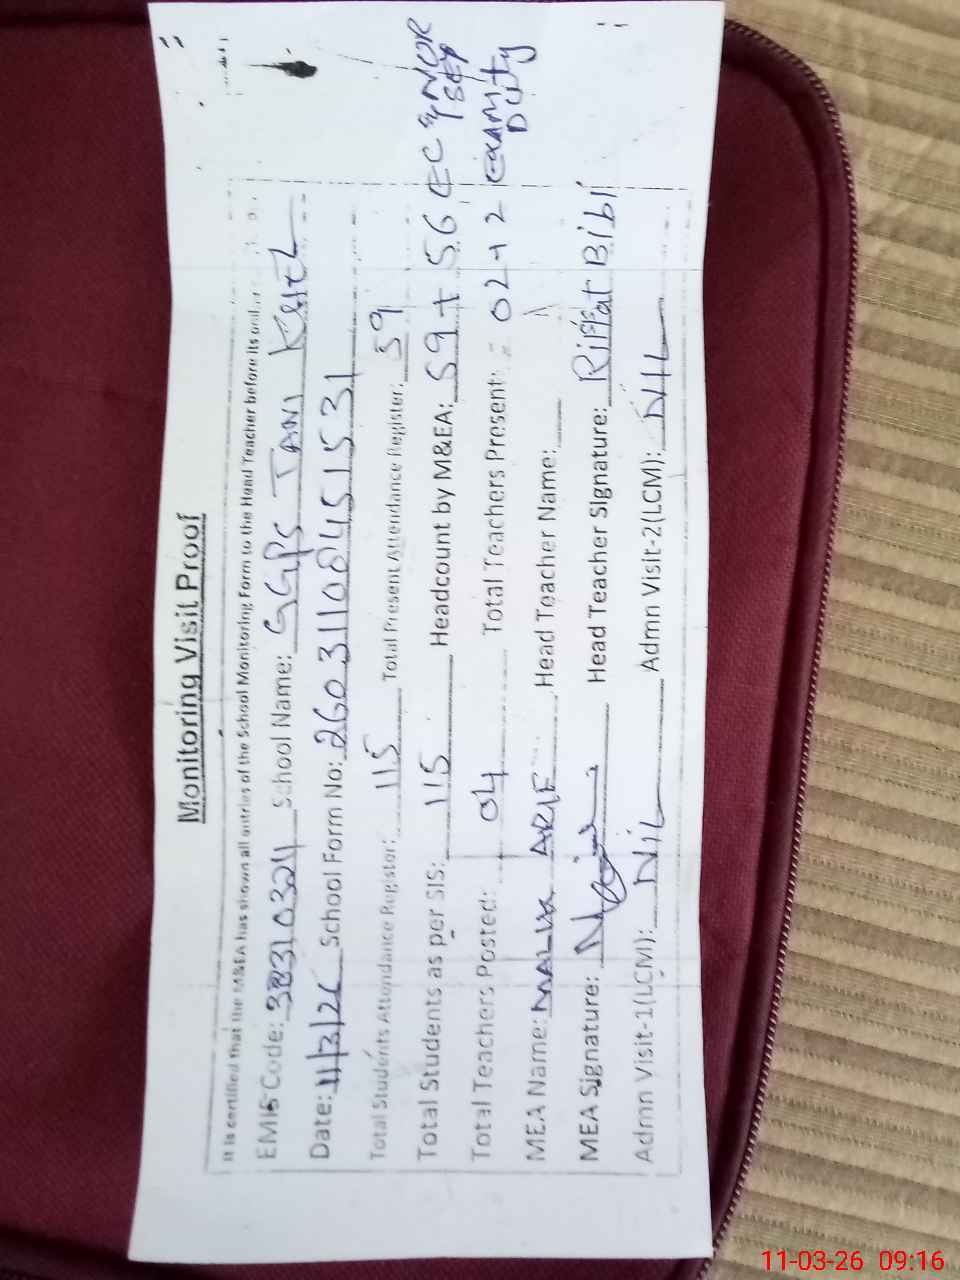 Monitoring Visit Proof
It is certified that the M&EA has shown all entries of the School Monitoring Form to the Head Teacher before its
EMIS Code: 38310324 School Name: GGPS TANI KHEL
Date: 11/3/26 School Form No: 26031108451531
Total Students Attendance Register: 115 Total Present Attendance Register: 59
Total Students as per SIS: 115 Headcount by M&EA: 59 + 56 EC
Total Teachers Posted: 04 Total Teachers Present: 02+2 Exam Duty
MEA Name: MALIK ARIF Head Teacher Name:
MEA Signature: Head Teacher Signature: Riffat Bibi
Admn Visit-1(LCM): NIL Admn Visit-2(LCM): NIL
11-03-26 09:16